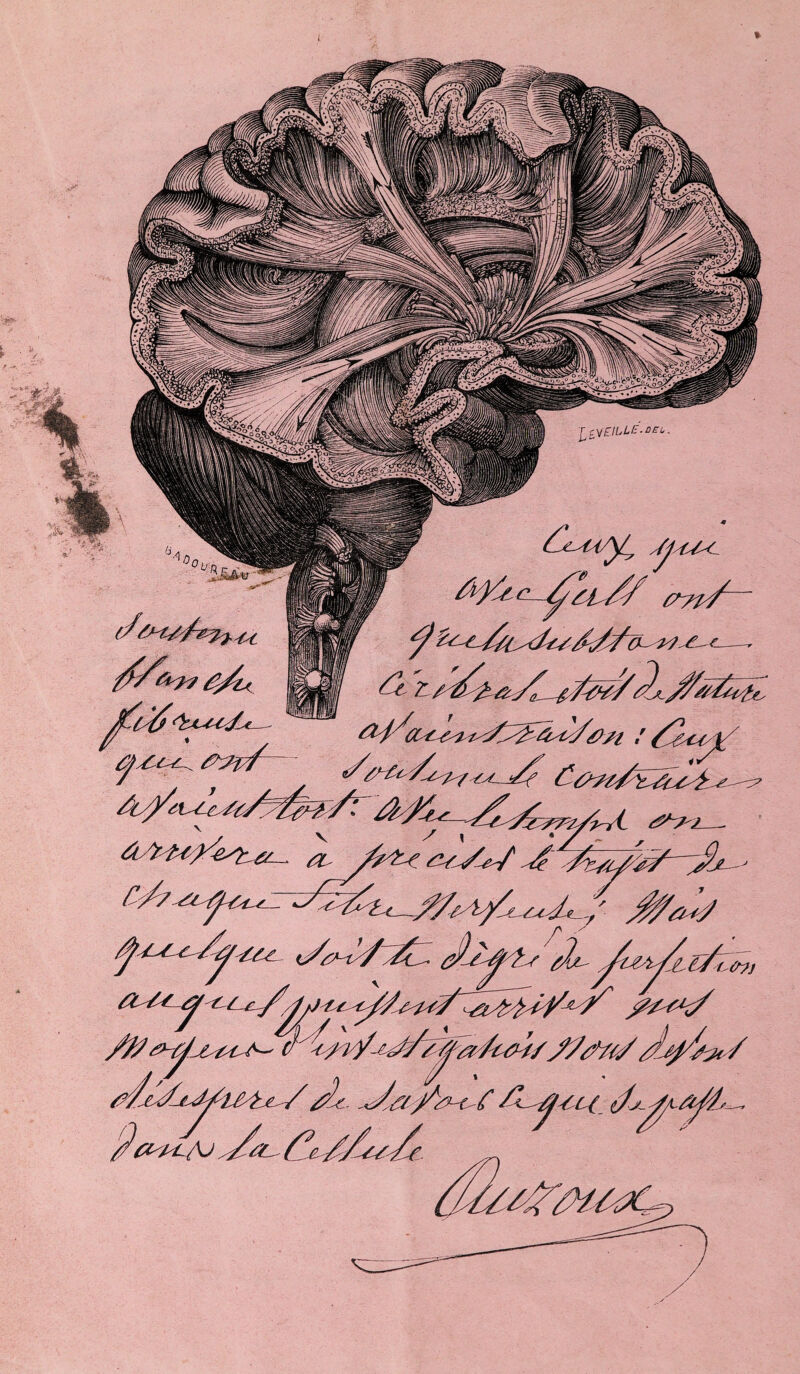 LEVEILLÉ.DEL.
BADOUREAU
Ceux qui
avec Gall ont
soutenu que la substance
blanche cérébrale étoit de Nature
fibreuse avaient raison : Ceux
qui ont soutenu le contraire
avaient tort : avec le temps on
arrivera à préciser le trajet de
chaque fibre Nerveuse ; Mais
quelque soit le dégré de perfection
auquel puissent arriver nos
moyens d'investigations Nous devons
désesperer de savoir ce qui se passe
dans la Cellule
Auzoux